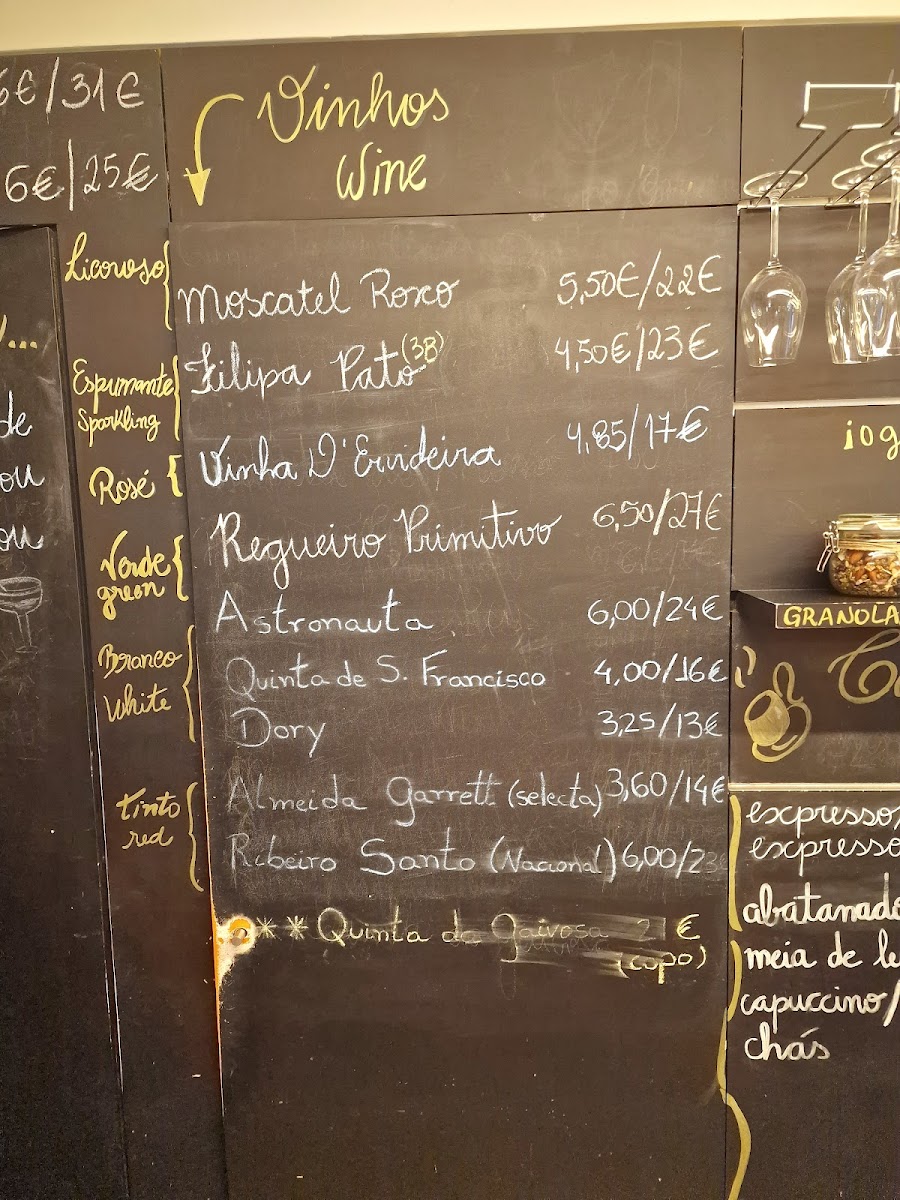 6€/31€
6€/25€
Vinhos
Wine
Licoroso
Moscatel Roxo 5,50€/22€
Espumante
Sparkling
Filipa Pato (3B) 4,50€/23€
Rosé
Vinha D'Ervideira 4,85/17€
Verde
green
Regueiro Primitivo 6,50/27€
Astronauta 6,00/24€
Branco
White
Quinta de S. Francisco 4,00/16€
Dory 3,25/13€
tinto
red
Almeida Garrett (selecta) 3,60/14€
Ribeiro Santo (Nacional) 6,00/23€
** Quinta da Gaivosa €
(copo)
...
de
ou
ou
iog
GRANOLA
expresso/
expresso
abatanado
meia de le
capuccino/
chás